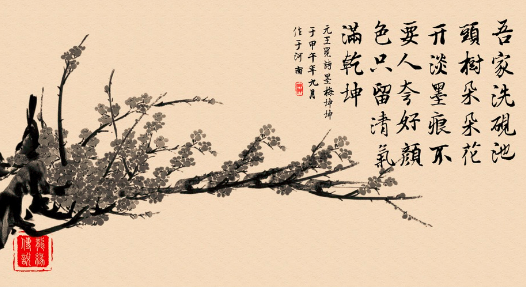 吾家洗硯池
頭樹朵朵花
开淡墨痕不
要人夸好顏
色只留清氣
滿乾坤
元王冕詩墨梅坤坤
于甲午年元月
作于河南